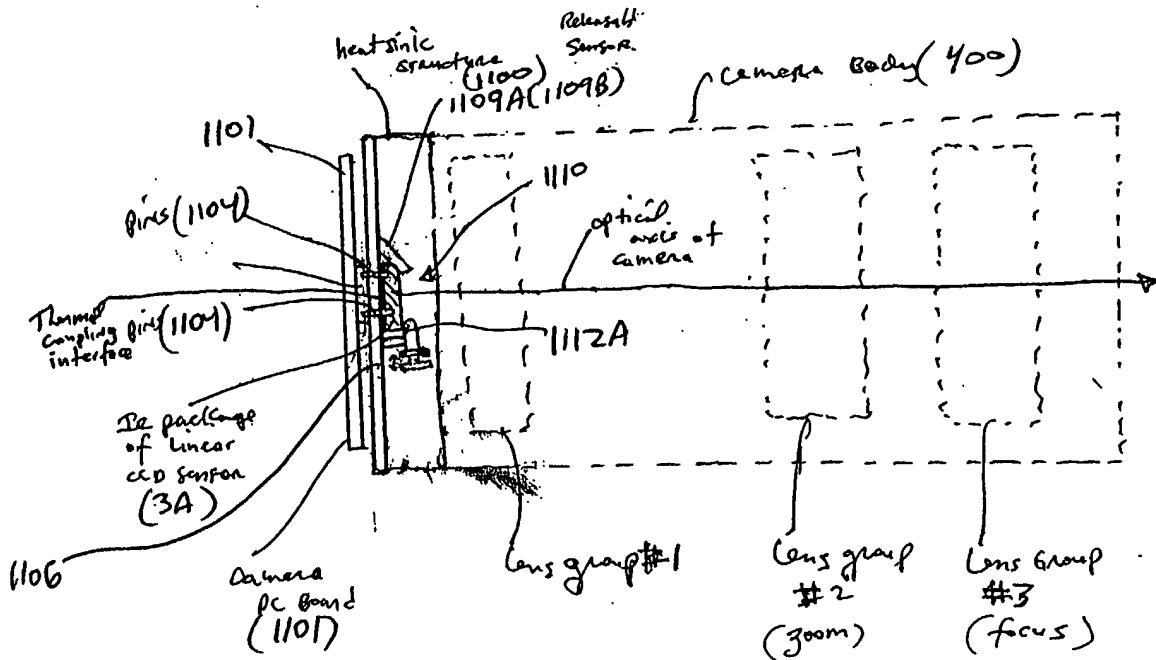 heatsink
structure
(1100)
Releasable
Sensor
1109A(1109B)
camera Body(400)
1101
pins(1104)
1110
optical
axis of
camera
Thermal
coupling
interface
pins(1104)
1112A
Ic package
of linear
CCD sensor
(3A)
1106
Camera
PC Board
(1101)
Lens group#1
Lens group
#2
(zoom)
Lens Group
#3
(focus)